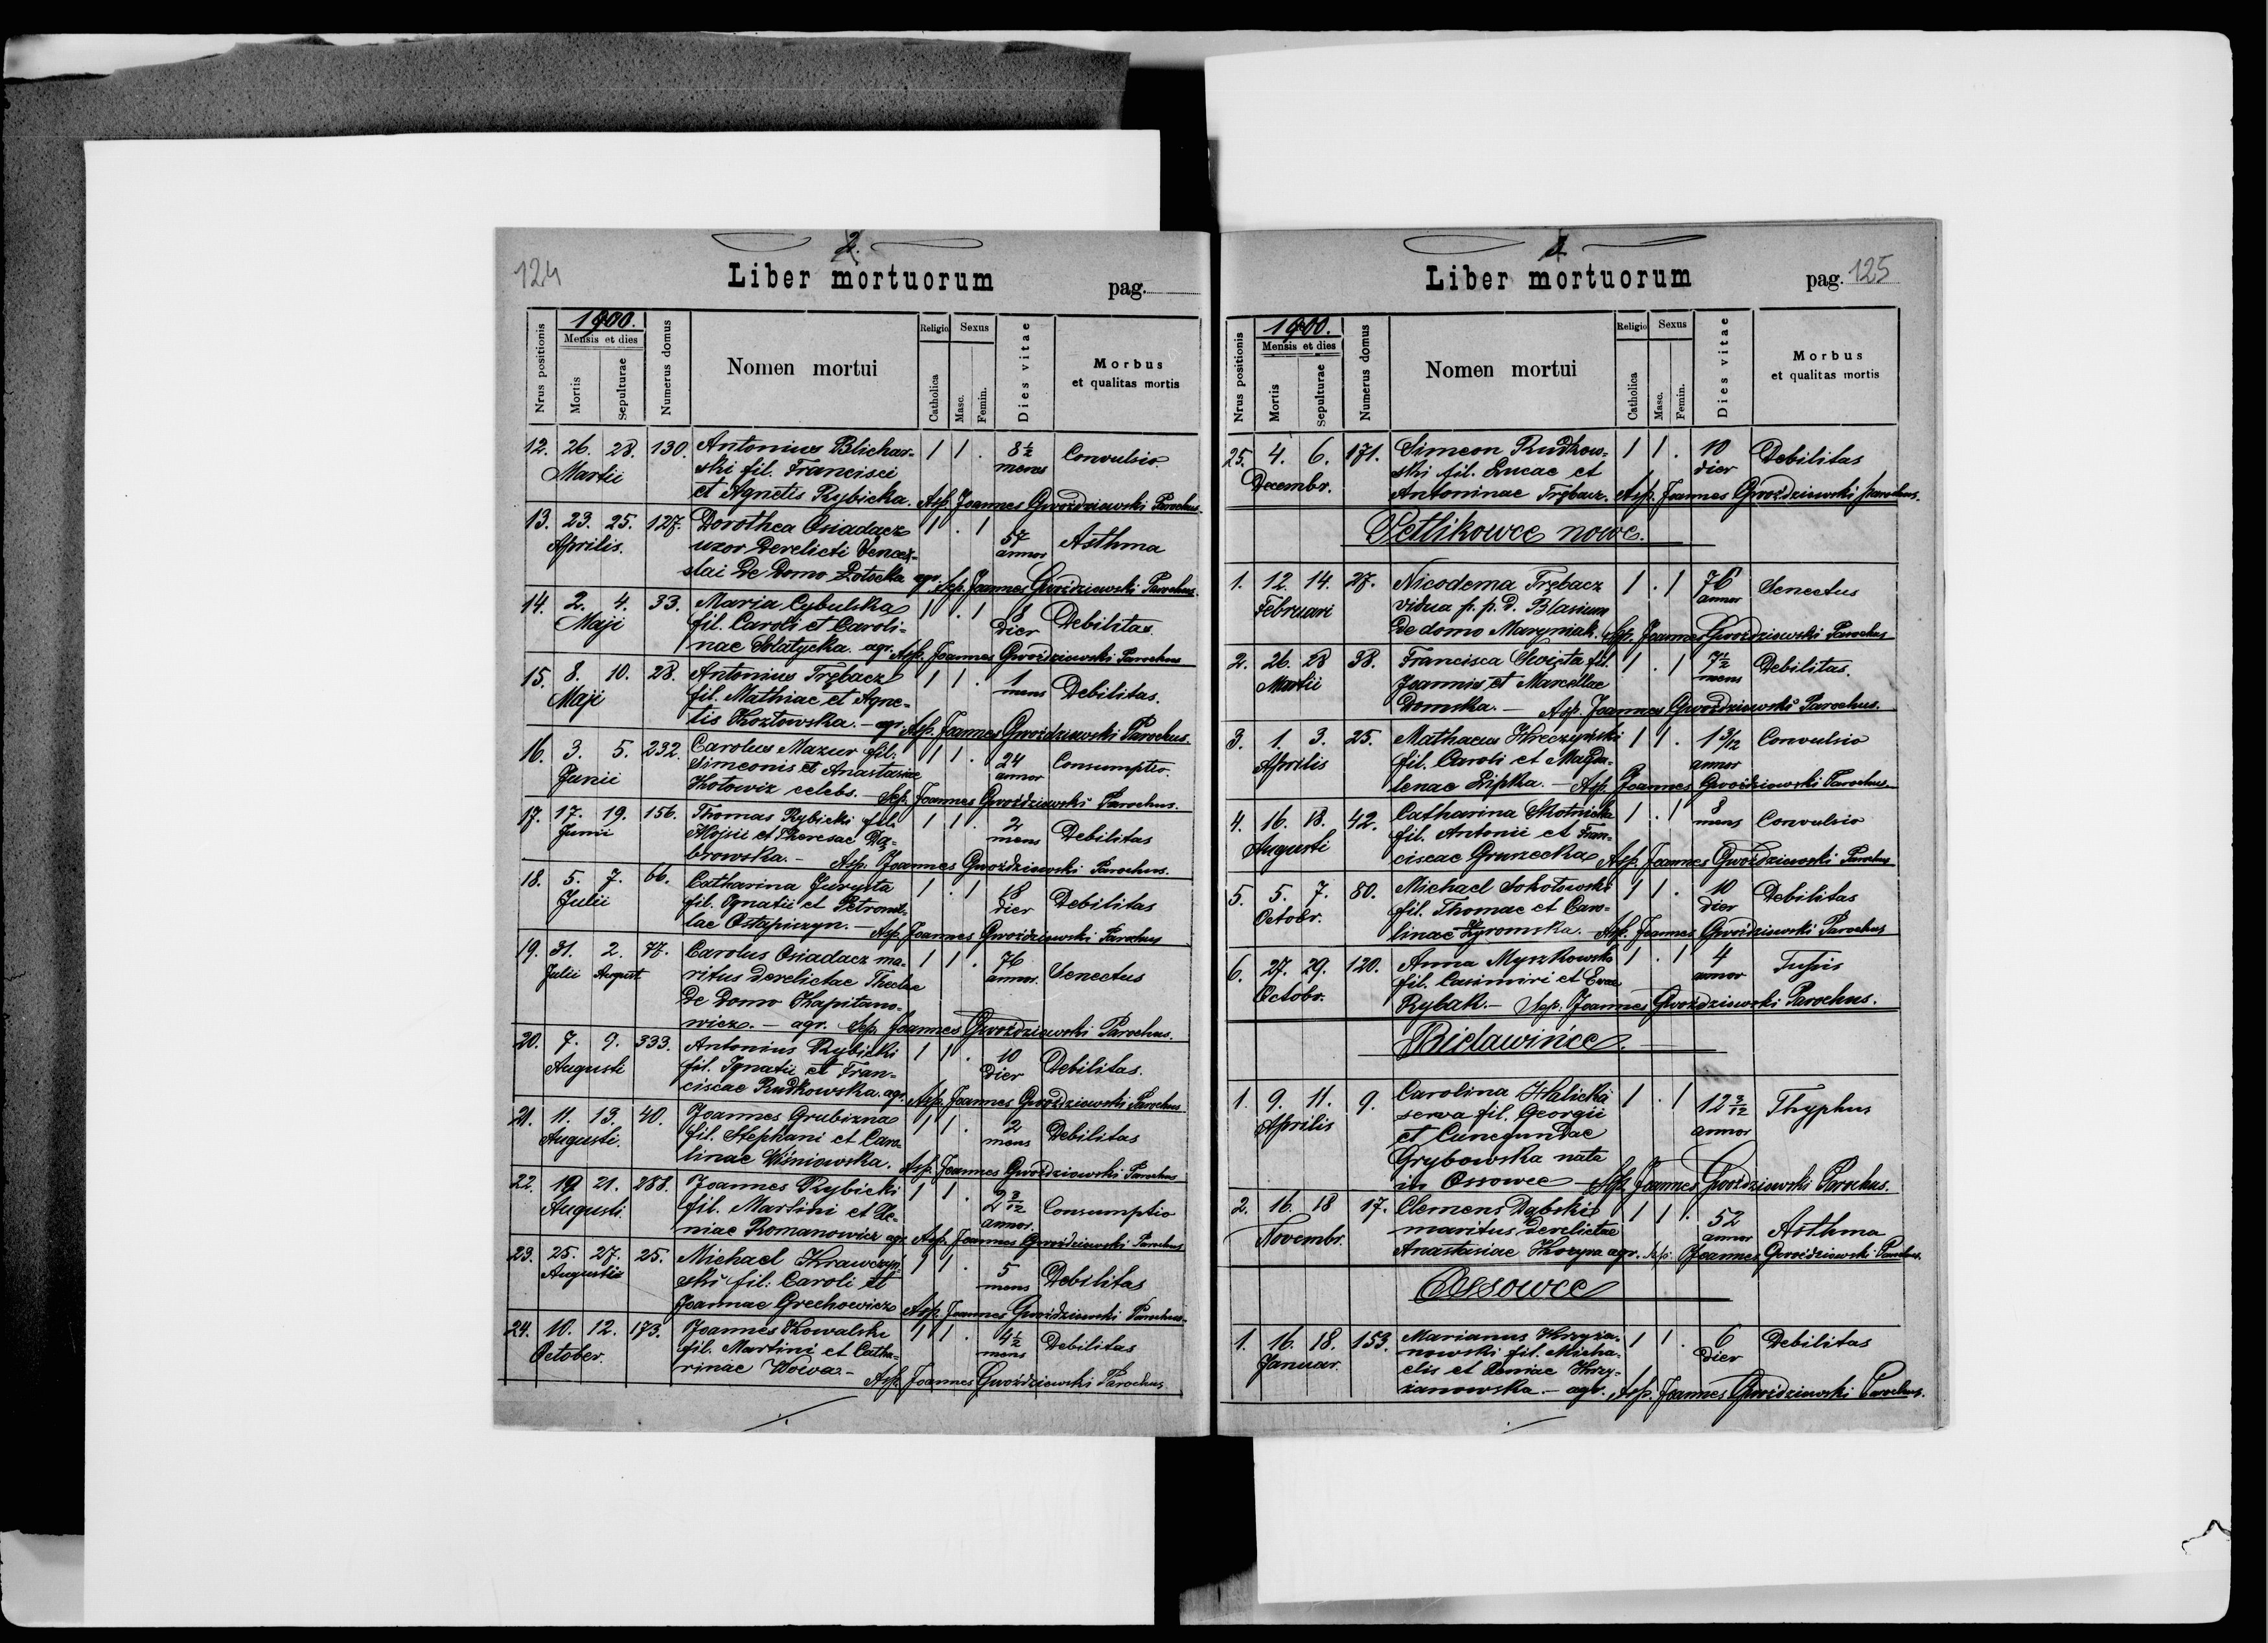 124
2.
Liber mortuorum
pag.
Nrus positionis
1900.
Mensis et dies
Mortis
Sepulturae
Numerus domus
Nomen mortui
Religio
Catholica
Sexus
Masc.
Femin.
Dies vitae
Morbus
et qualitas mortis
12. 26. 28. 130. Antonius Blichar- 1 1 . 8½ Convulsio.
Martii ski fil. Francisci mens
et Agnetis Rybicka. Asp. Joannes Gwoździewski Parochus.
13. 23. 25. 127. Dorothea Osiadacz 1 . 1 57 Asthma
Aprilis. uxor derelicti Vences- annor
slai de domo Potocka agr. Sep. Joannes Gwoździewski Parochus.
14. 2. 4. 33. Maria Cybulska 1 . 1 8 Debilitas
Maji fil. Caroli et Caroli- dier
nae Slatycka. agr. Asp. Joannes Gwoździewski Parochus
15. 8. 10. 28. Antonius Trębacz 1 1 . 1 Debilitas.
Maji fil. Mathiae et Agne- mens
tis Kozłowska. - agr. Asp. Joannes Gwoździewski Parochus.
16. 3. 5. 232. Carolus Mazur fil. 1 1 . 24 Consumptio.
Junii Simeonis et Anastasiae annor
Kotowiz celebs. - Sep. Joannes Gwoździewski Parochus.
17. 17. 19. 156. Thomas Rybicki fil. 1 1 . 2 Debilitas
Junii Alojsii et Theresae Dą- mens
browska. - Asp. Joannes Gwoździewski Parochus.
18. 5. 7. 66. Catharina Jurysta 1 . 1 18 Debilitas
Julii fil. Ignatii et Petronel- dier
lae Ostapiszyn. - Asp. Joannes Gwoździewski Parochus
19. 31. 2. 77. Carolus Osiadacz ma- 1 1 . 76 Senectus
Julii August ritus derelictae Theclae annor.
de domo Kapitano-
wicz. - agr. Sep. Joannes Gwoździewski Parochus.
20. 7. 9. 333. Antonius Rybicki 1 1 . 10 Debilitas.
Augusti fil. Ignatii et Fran- dier
ciscae Rudkowska. agr. Asp. Joannes Gwoździewski Parochus
21. 11. 13. 40. Joannes Grubizna 1 1 . 2 Debilitas
Augusti. fil. Stephani et Caro- mens
linae Wiśniowska. Asp. Joannes Gwoździewski Parochus
22. 19 21. 288. Joannes Rybicki 1 1 . 2 3/12 Consumptio
Augusti. fil. Martini et Xe- annor.
niae Romanowicz agr. Asp. Joannes Gwoździewski Parochus
23. 25. 27. 25. Michael Krawczyń- 1 1 . 5 Debilitas
Augusti ski fil. Caroli et mens
Joannae Grechowicz Asp. Joannes Gwoździewski Parochus.
24. 10. 12. 173. Joannes Kowalski 1 1 . 4½ Debilitas
October. fil. Martini et Catha- mens
rinae Wowa. - Asp. Joannes Gwoździewski Parochus
Liber mortuorum
pag. 125
Nrus positionis
1900.
Mensis et dies
Mortis
Sepulturae
Numerus domus
Nomen mortui
Religio
Catholica
Sexus
Masc.
Femin.
Dies vitae
Morbus
et qualitas mortis
25. 4. 6. 171. Simeon Rudkow- 1 1 . 10 Debilitas
Decembr. ski fil. Lucae et dier
Antoninae Trębacz. Asp. Joannes Gwoździewski parochus.
Petlikowce nowe.
1. 12. 14. 27. Nicodema Trębacz 1 . 1 76 Senectus
Februari vidua p. p. d. Blasium annor
de domo Maryniak. Sep. Joannes Gwoździewski Parochus
2. 26. 28 38. Francisca Święta fil. 1 . 1 7½ Debilitas.
Martii Joannis et Marcellae mens
Domska. - Asp. Joannes Gwoździewski Parochus.
3. 1. 3. 25. Mathaeus Kreczyński 1 1 . 1 3/12 Convulsio
Aprilis fil. Caroli et Magda- annor
lenae Lipka. - Asp. Joannes Gwoździewski Parochus.
4. 16. 18. 42. Catharina Słotnicka 1 . 1 8 Convulsio
Augusti fil. Antonii et Fran- mens
ciscae Gruszecka Asp. Joannes Gwoździewski Parochus
5. 5. 7. 80. Michael Sokołowski 1 1 . 10 Debilitas
Octobr. fil. Thomae et Caro- dier
linae Żyromska. - Asp. Joannes Gwoździewski Parochus
6. 27. 29. 120. Anna Myszkowska 1 . 1 4 Tussis
Octobr. fil. Casimiri et Evae annor
Rybak. - Sep. Joannes Gwoździewski Parochus.
Bielawińce.
1. 9. 11. 9. Carolina Halicka 1 . 1 12 3/12 Thyphus
Aprilis serva fil. Georgii annor
et Cunegundae
Grybowska nata
in Ossowce - Sep. Joannes Gwoździewski Parochus.
2. 16. 18 17. Clemens Dąbski 1 1 . 52 Asthma
Novembr. maritus derelictae annor
Anastasiae Kozyra agr. Sep. Joannes Gwoździewski Parochus.
Ossowce
1. 16. 18. 153. Marianus Krzyża- 1 1 . 6 Debilitas
Januar. nowski fil. Micha- dier
elis et Xeniae Krzy-
żanowska. - agr. Asp. Joannes Gwoździewski Parochus.